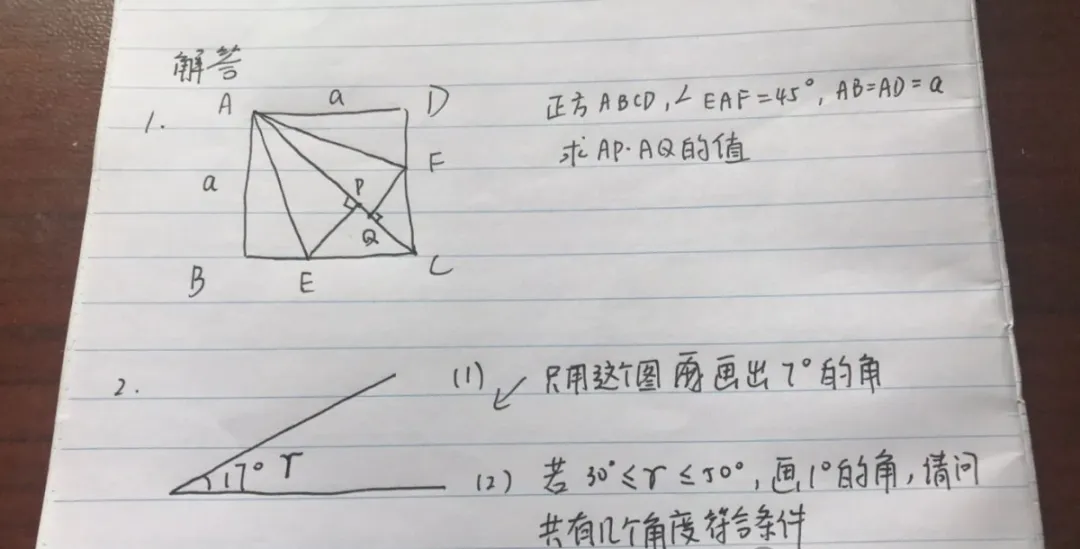 解答
1.
A a D
正方ABCD,∠EAF=45°,AB=AD=a
求AP·AQ的值
a
F
P
Q
B E C
2.
(1) 只用这个图 画出7°的角
17° r
(2) 若30°≤r≤50°,画1°的角,请问
共有几个角度符合条件